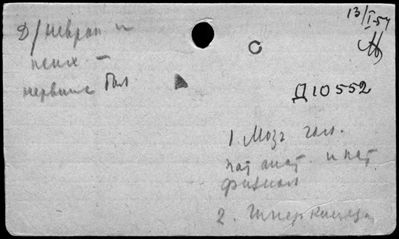 13/I-57
Д/неврол и
псих –
нервные бол
Д10552
1 Мозг гол.
пат анат. и пат
физиол
2. Гипер